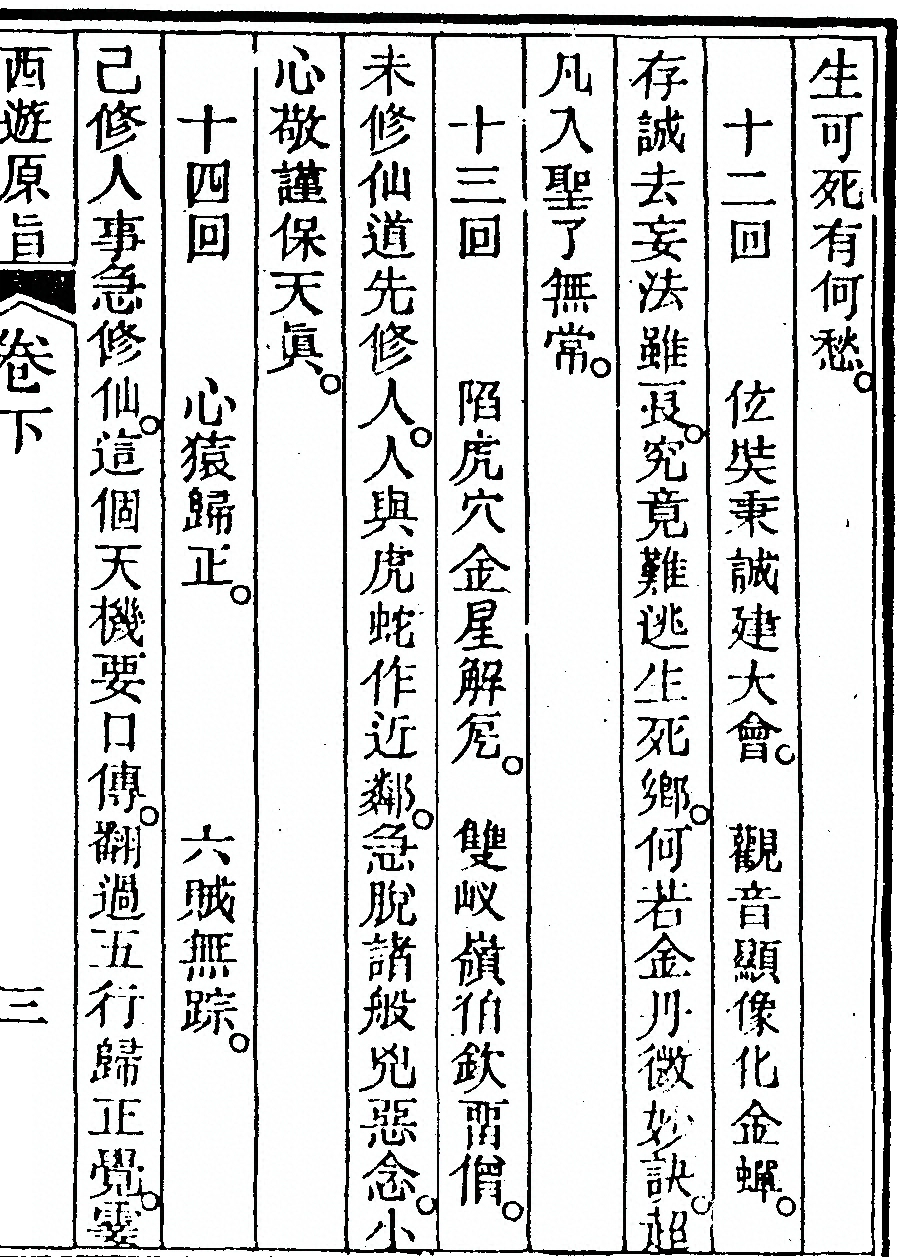 生可死有何愁。
十二回 位裝秉誠建大會。 觀音顯像化金蟬。
存誠去妄法雖良。究竟難逃生死鄉。何若金丹微妙訣。超
凡入聖了無常。
十三回 陷虎穴金星解厄。 雙嶺伯欽畱僧。
未修仙道先修人。人與虎蛇作近鄰。急脫諸般兇惡念。小
心敬謹保天眞。
十四回 心猿歸正。 六賊無踪。
己修人事急修仙。這個天機要口傳。翻過五行歸正覺。靈
西遊原旨 卷下 三